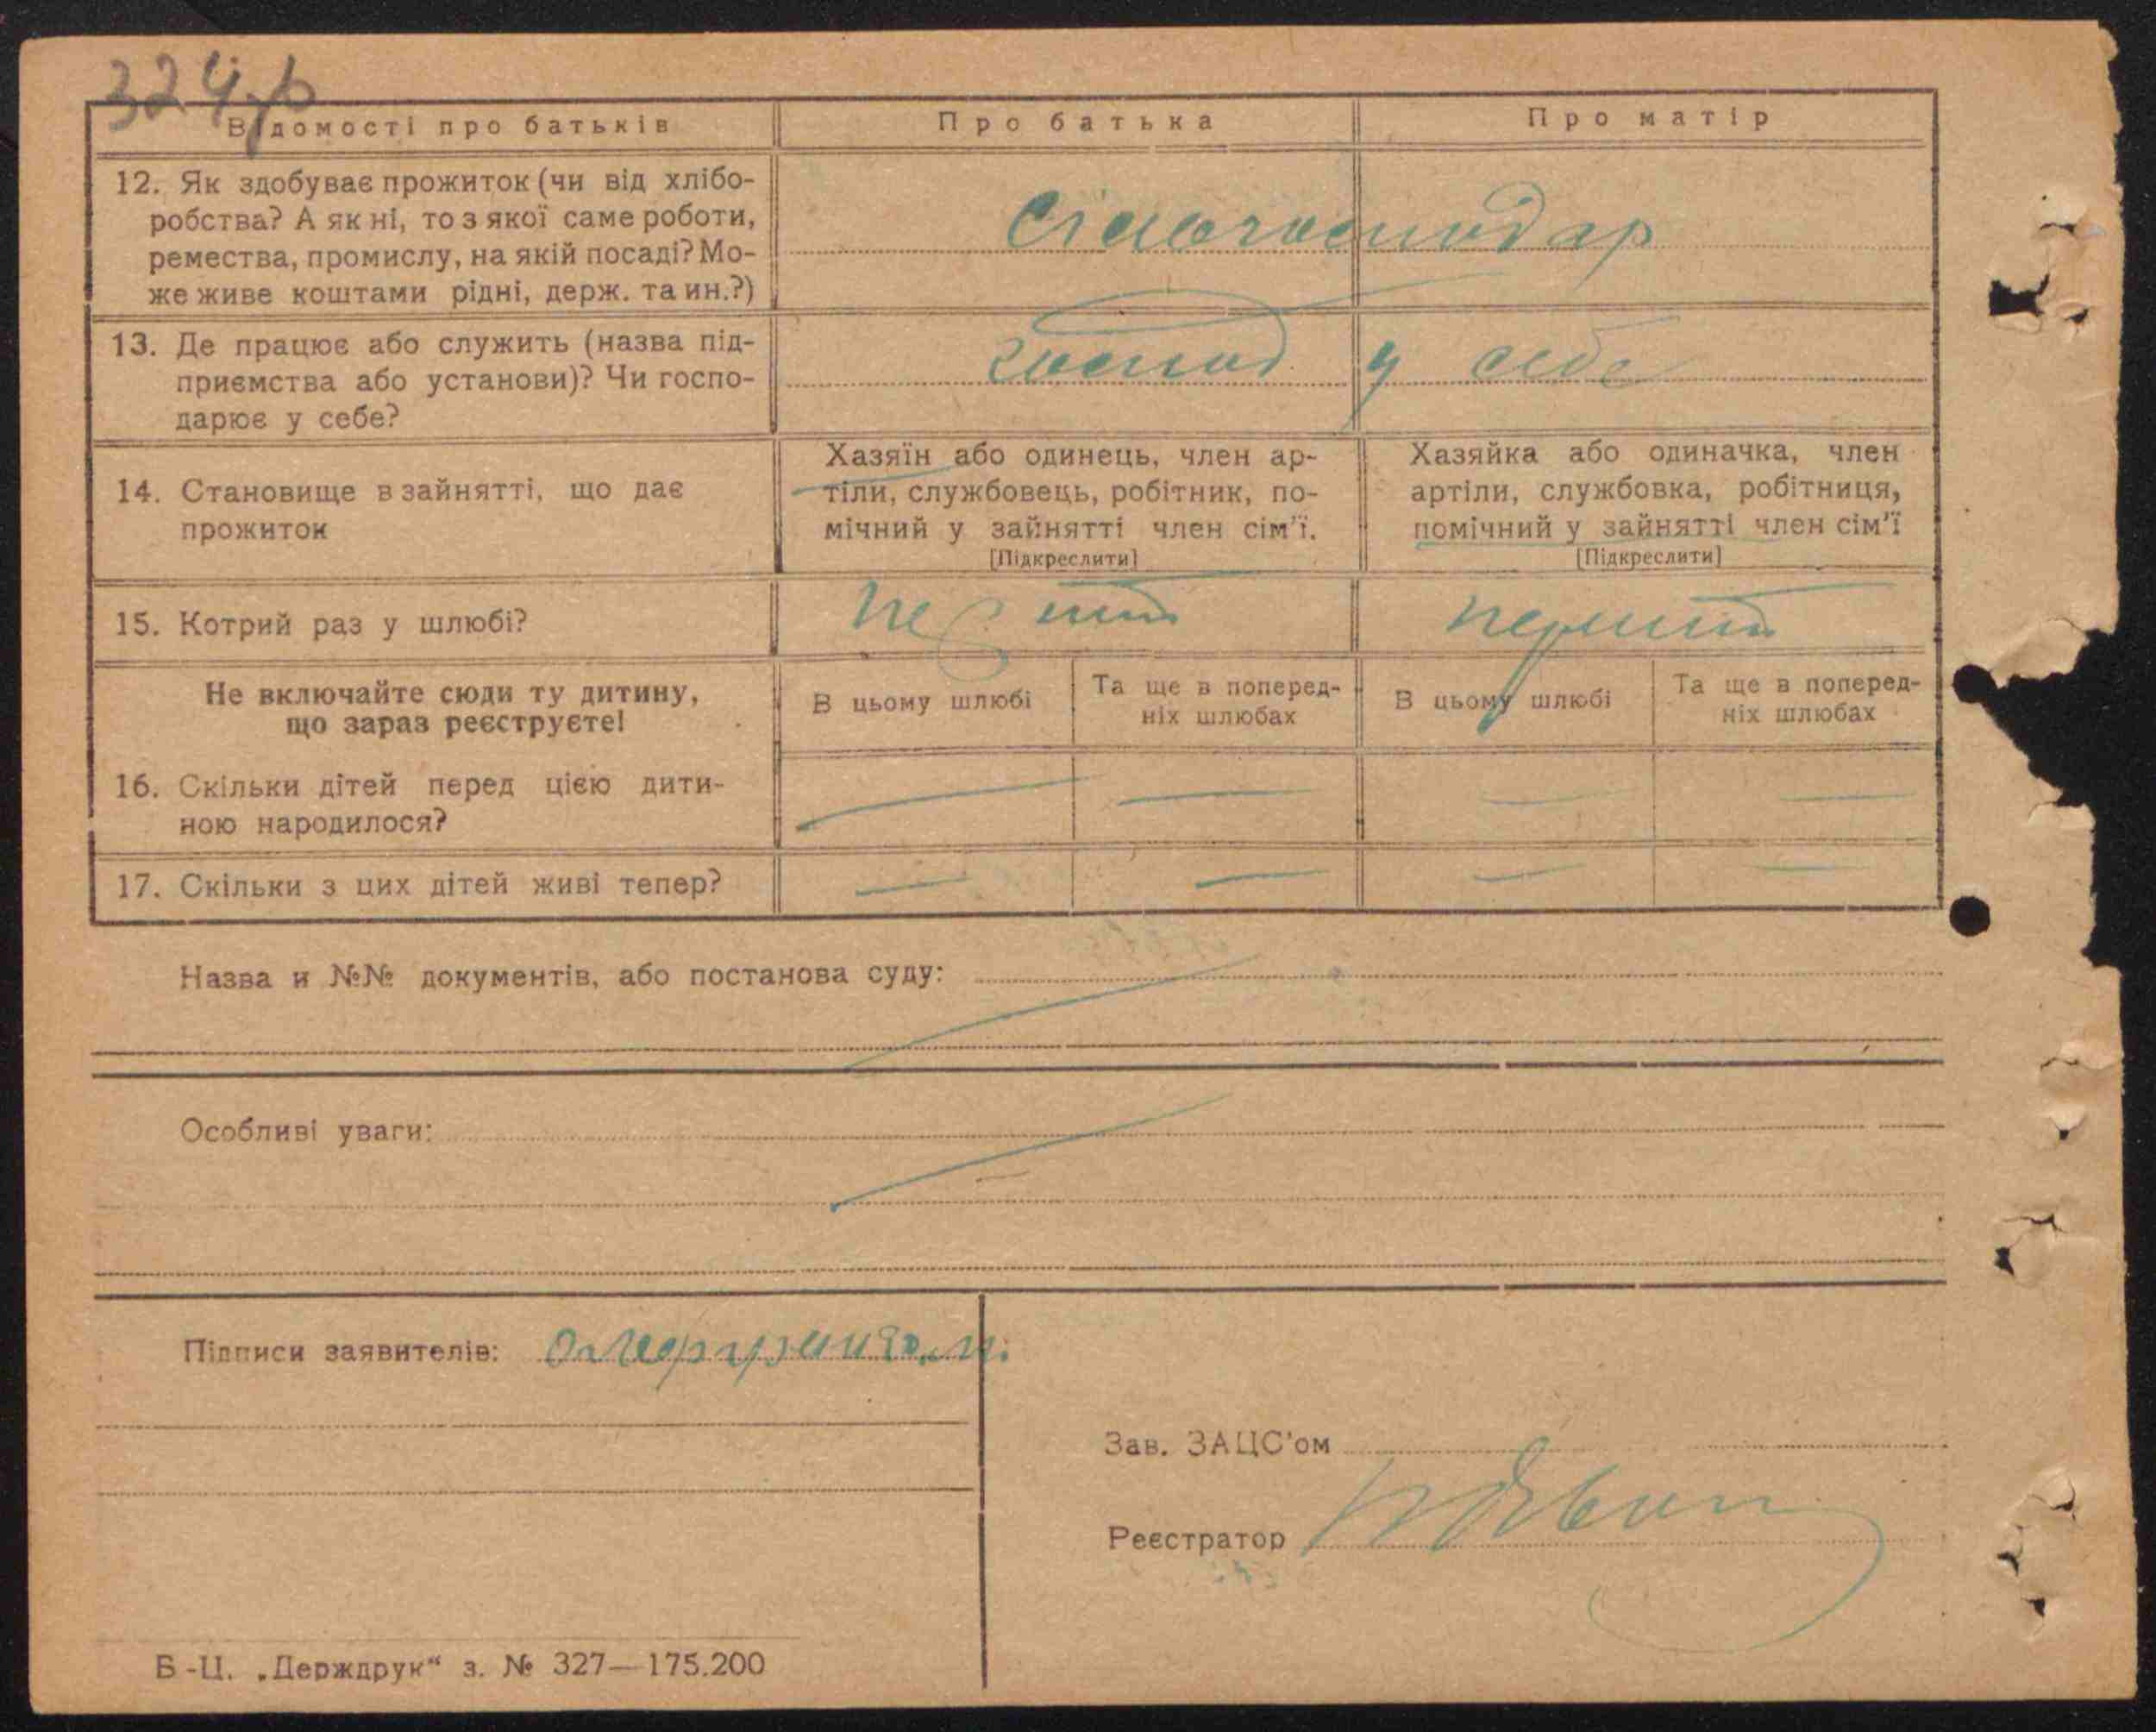 Відомості про батьків
Про батька
Про матір
12. Як здобуває прожиток (чи від хлібо-
робства? А як ні, то з якої саме роботи,
ремества, промислу, на якій посаді? Мо-
же живе коштами рідні, держ. та ин.?)
сільгосподар
13. Де працює або служить (назва під-
приємства або установи)? Чи госпо-
дарює у себе?
господ. у себе
14. Становище в зайнятті, що дає
прожиток
Хазяїн або одинець, член ар-
тіли, службовець, робітник, по-
мічний у зайнятті член сім'ї.
[Підкреслити]
Хазяйка або одиначка, член
артіли, службовка, робітниця,
помічний у зайнятті член сім'ї
[Підкреслити]
15. Котрий раз у шлюбі?
перший
перший
Не включайте сюди ту дитину,
що зараз реєструєте!
В цьому шлюбі
Та ще в поперед-
ніх шлюбах
В цьому шлюбі
Та ще в поперед-
ніх шлюбах
16. Скільки дітей перед цією дити-
ною народилося?
17. Скільки з цих дітей живі тепер?
Назва и №№ документів, або постанова суду:
Особливі уваги:
Підписи заявителів:
Зав. ЗАЦС'ом
Реєстратор
Б-Ц. „Держдрук“ з. № 327—175.200